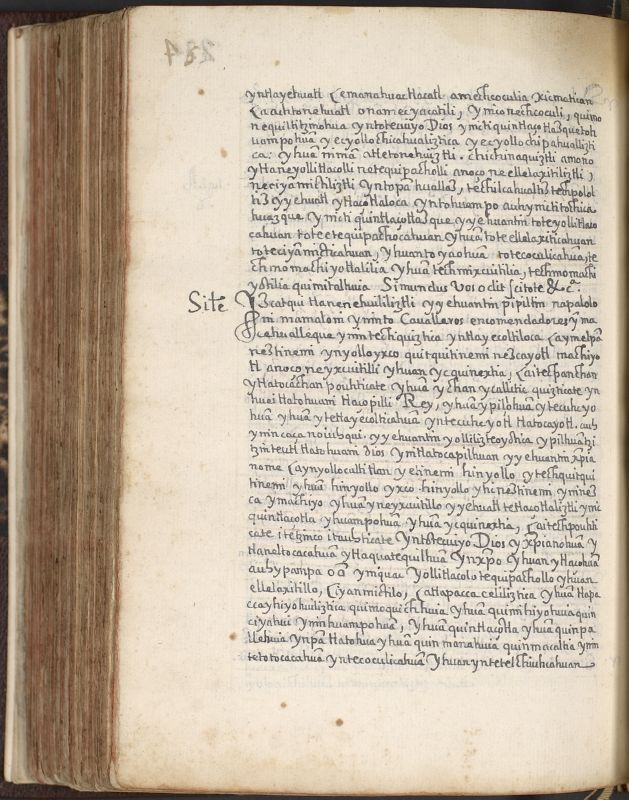 yntlayehuatl Cemanahuactlacatl amechcoculia Xicmatican
Ca achtonehuatl onamechyacatili, Ymionechcoculi, quimo
nequiltitzinohua yntotecuiyo Dios ymitiquintlaçotlazqueto
huampohuā yc cyollochicahualiztica yc cyollochipahualizti
ca: yhuā inmā atletonehuiztli. chichinaquiztli amono
ytlaneyollitlacolli netequipacholli anoço neellelaxitiliztli,
neciyāmichiliztli yntopā huallaz, techilcahualtiz techpolol
tiz yyehuatl ytlaçotlaloca yntohuampo auhymititochica
huazque ymitiquintlaçotlazque yyehuantin toteyollitlaco
cahuan totetequipachocahuan yhuā toteellelaxiticahuan
toteciyāmicticahuan, yhuantoyaohuā totecoculicahua, te
chmomachiyotlalilia yhuā techmixcuitilia, techmomachi
yotilia quimitalhuia Simundus Vos odit scitote &cª.
Site Yzcatqui tlanenehuililiztli yyehuantin pipiltin napalolo
ni mamaloni yninto Caualleros encomenderos yma
cehualleque ynintechiquiztica yntlayecoltiloca Caymelpā
neztinemi ynyolloyxco quitquitinemi nezcayotl machiyo
tl anoço neyxcuitilli yhuan ycquinextia, Caitechpanchan
ytlatocachan pouhticate yhuā ychan ycallitic quizticate yn
huei tlatohuani tlacopilli Rey, yhuā ypilohuā ytecuhyo
huā yhuā ytetlayecolticahuā yntecuhyotl tlatocayotl. auh
ynin caça noiuhqui. yyehuantin yollilizteoyotica ypilhuātzi
tzin teutl tlatohuani dios ymtlatocapilhuan yyehuantin xp̄ia
nome Caynyollocaltitlan yetinemi hinyollo ytechquitqui
tinemi yhuā hinyollo yxco hinyollo yhneztinemi ynnez
ca ymachiyo yhuā yneyxcuitillo yyehuatl tetlaçotlaliztli ynic
quintlaçotla yhuampohuā, yhuā ycquinextia, Caitechpouhti
cate itetzinco itauhticate yntotecuiyo Dios yxp̄ianohuā y
tlaneltocacahuā ytlaquatequilhuā ynxp̄o yhuan ytlacohuā
auhypampa oā yniquac yollitlacolo tequipachollo yhuan
ellelaxitillo, Ciyanmictilo, Catlapaccaceliliztica yhuā tlapa
ccayhiyohuiliztica quimoquichhuia yhuā quimihiyohuia quin
ciyahui yninhuampohuā, yhuā quintlaçotla yhuā quinpa
llehuia ynpā tlatohua yhuā quinmanahuia quinmacaltia ynin
tetotocacahuā yntecoculicahuā yhuan yntetelchiuhcahuan